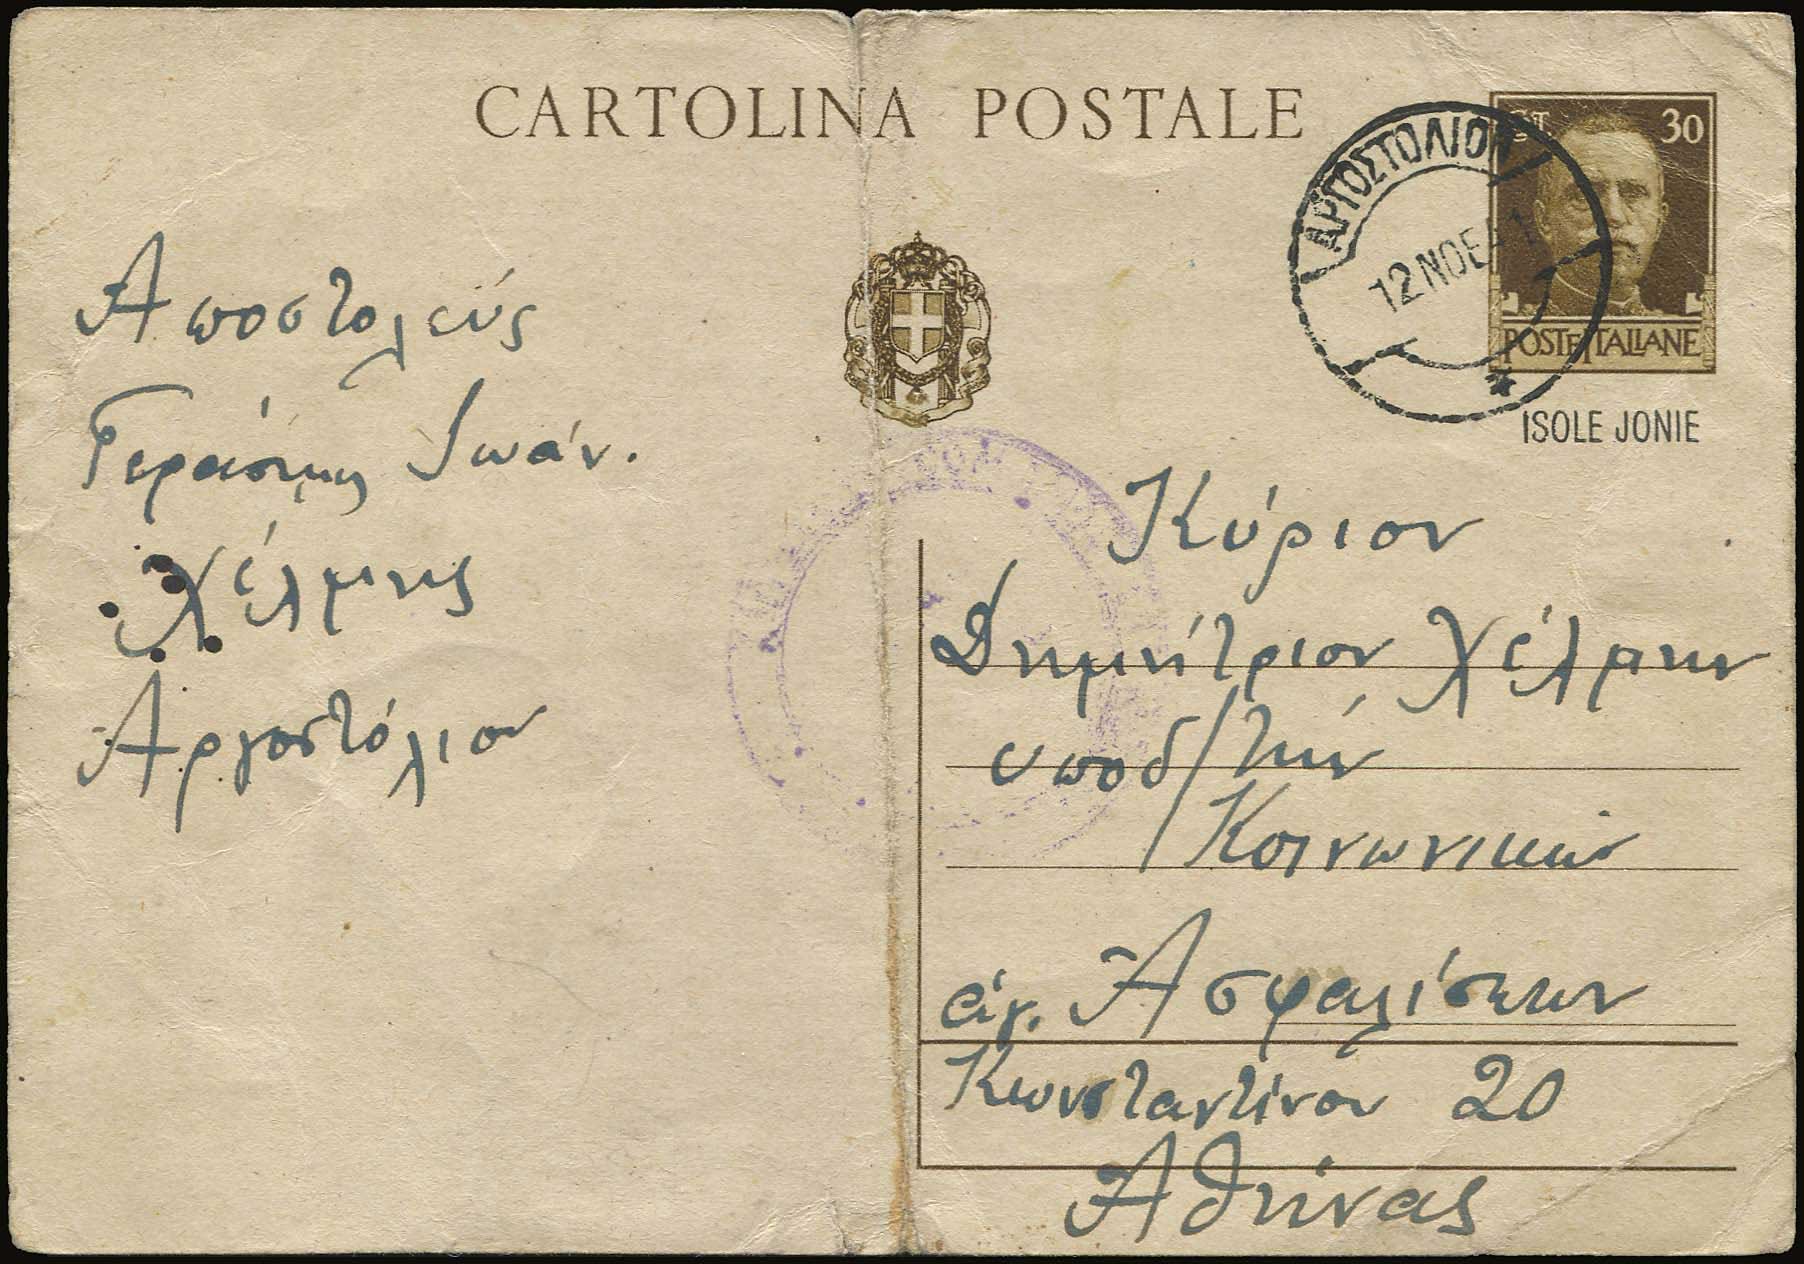 CARTOLINA POSTALE
CT. 30
POSTE ITALIANE
ISOLE JONIE
ΑΡΓΟΣΤΟΛΙΟΝ
12 ΝΟΕ 41
Αποστολεύς
Γεράσιμος Ιωάν.
Χέλμης
Αργοστόλιον
Κύριον
Δημήτριον Χέλμην
υποδ/τήν
Κοινωνικών
Ασφαλίσεων
Κωνσταντίνου 20
Αθήνας